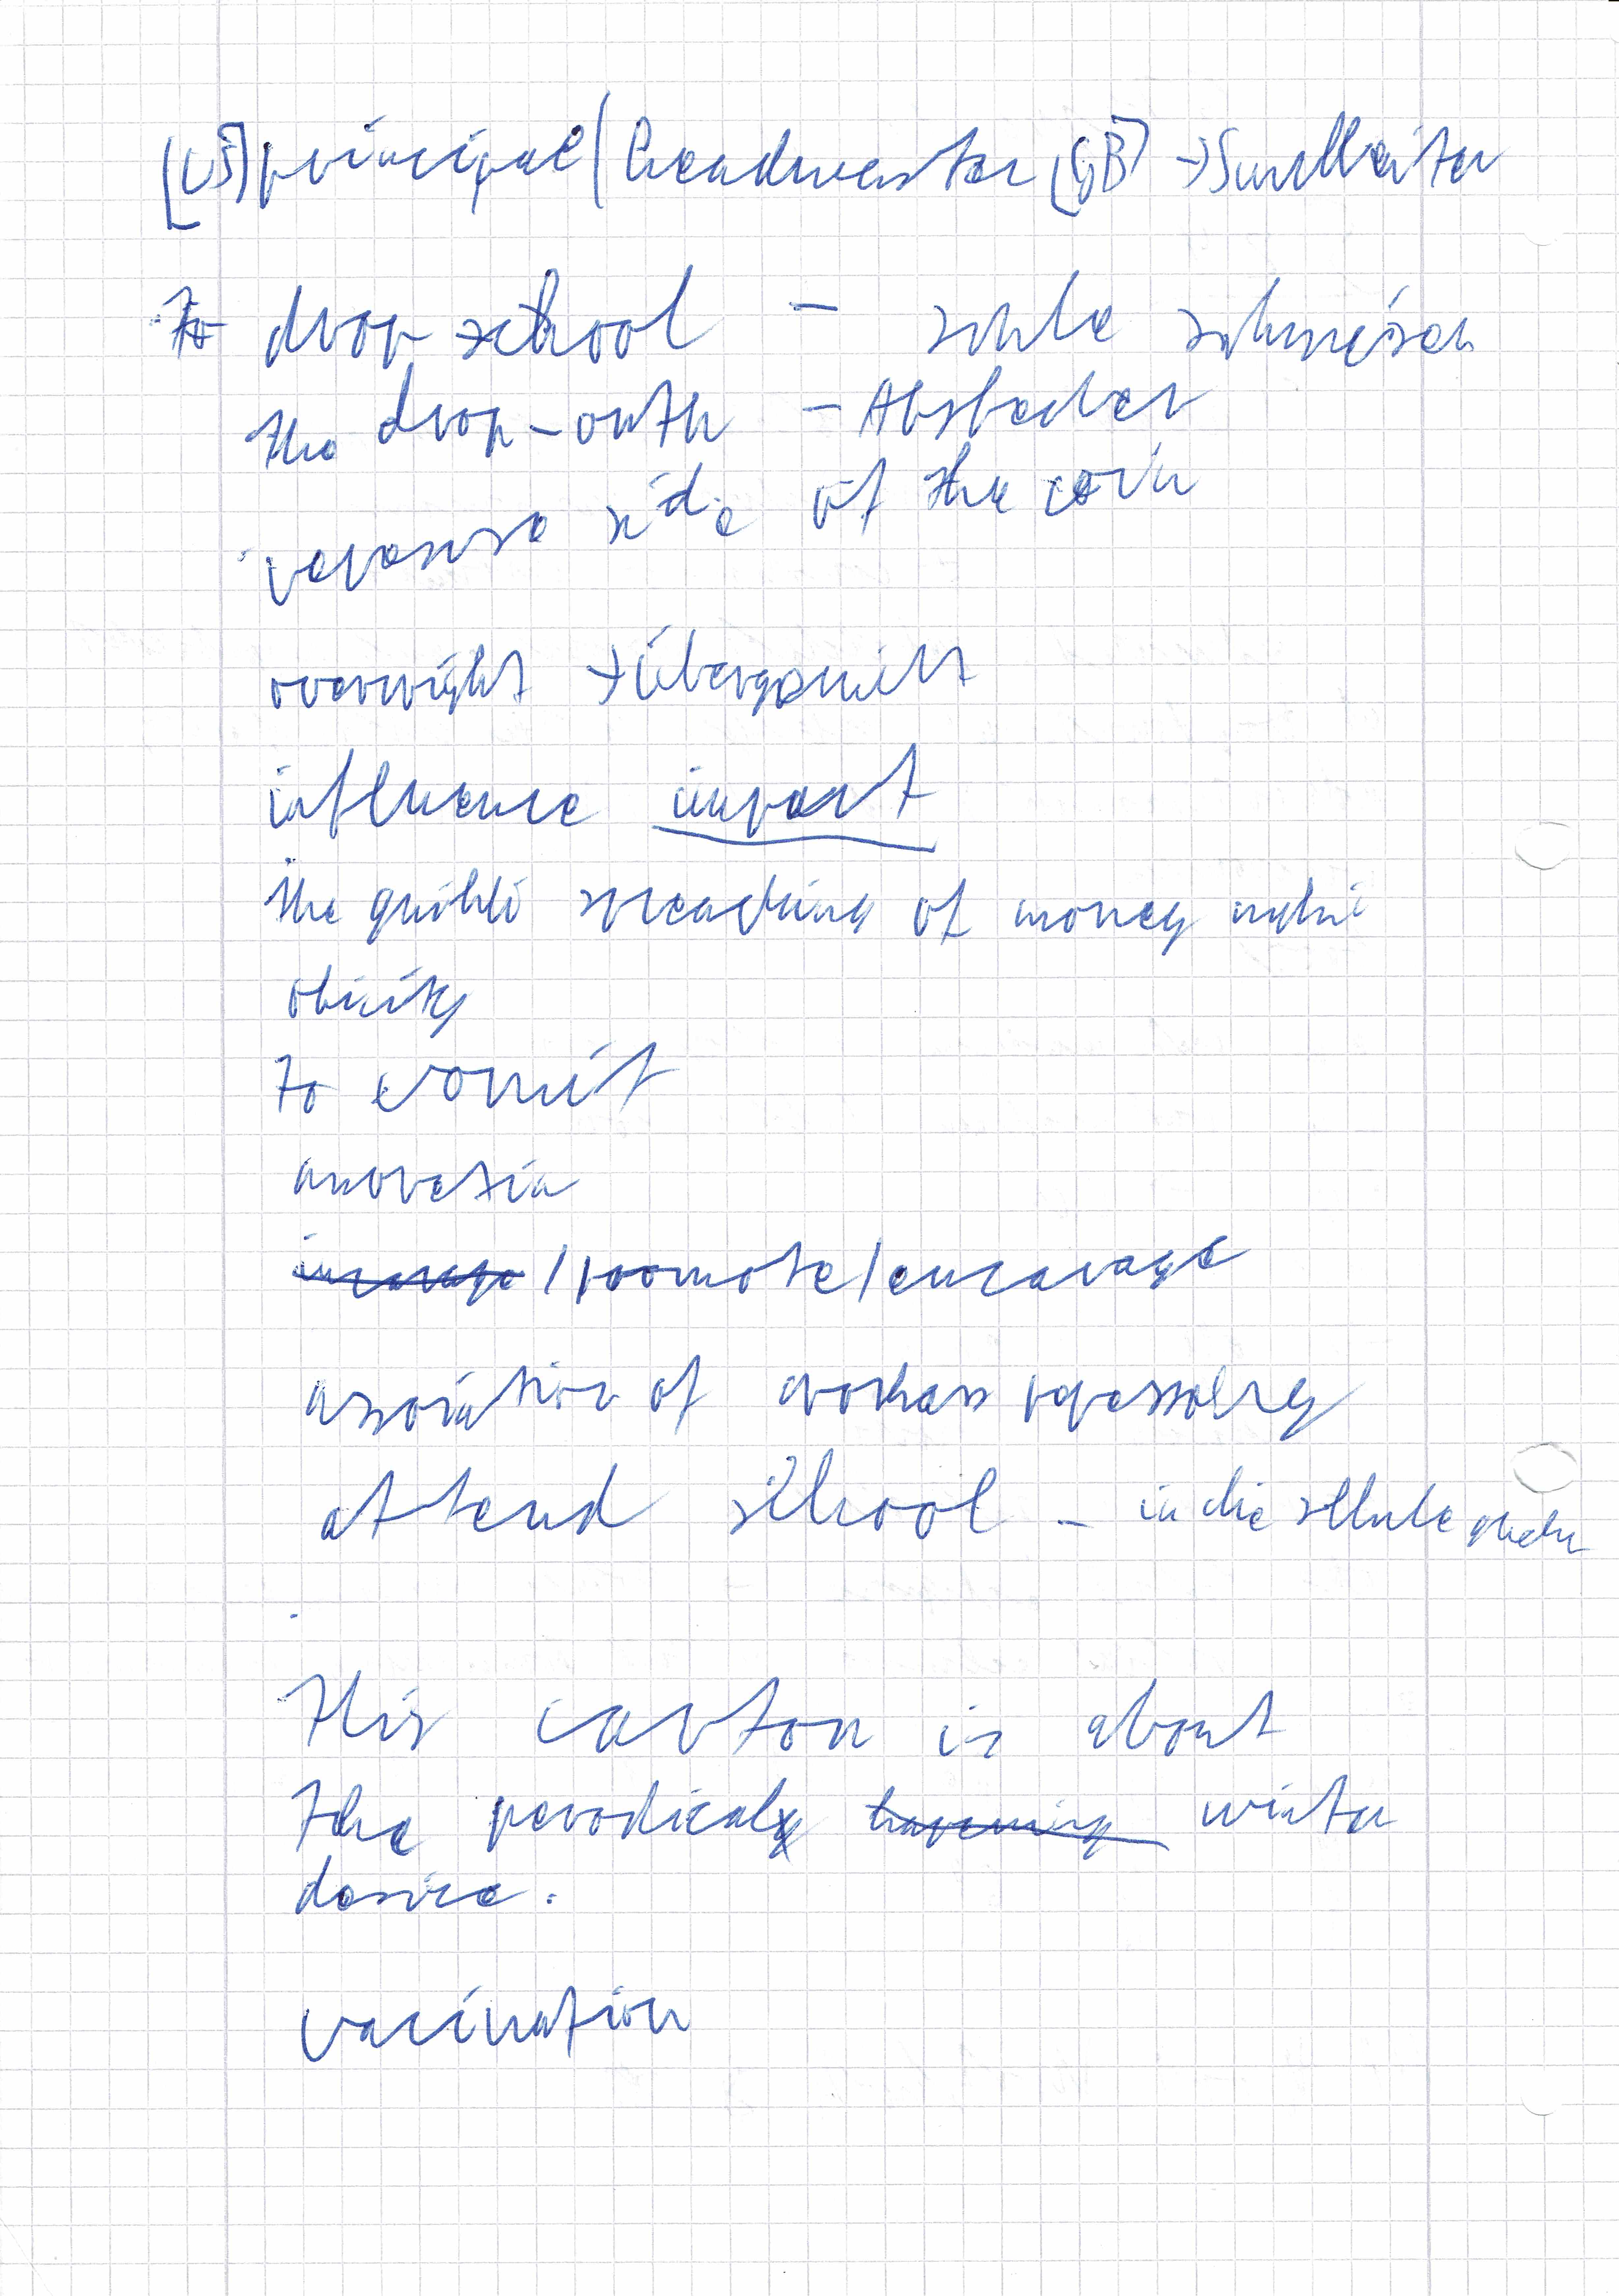 [US] principal / headmaster [GB] → Schulleiter
to drop school – schule schmeisen
the drop-outh –
reverse side of the coin
overwight → Übergewicht
influence impact
the spreading of money
obicity
to vomit
anorexia
/ promote / encarage
assosiation of workers
attend school – in die schule gehen
This carton is about
the perodicaly winter
desire.
vaccination